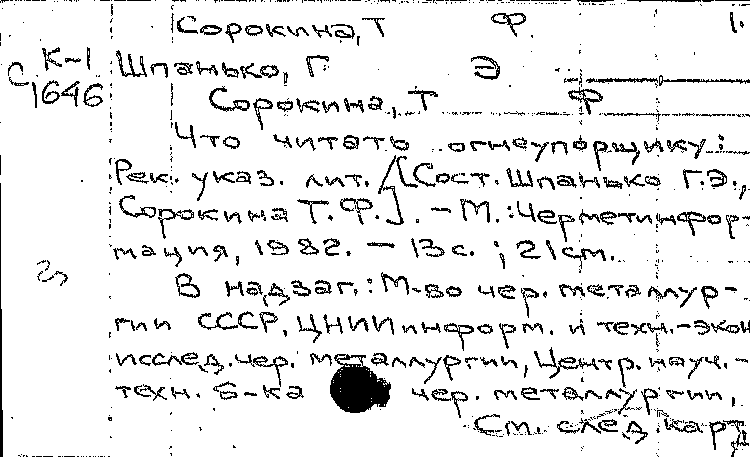 Сорокина, Т Ф. 1.
К-1
С 1646
Шпанько, Г Э
Сорокина, Т Ф
Что читать огнеупорщику:
Рек. указ. лит. / [Сост. Шпанько Г.Э.,
Сорокина Т.Ф.]. - М.: Черметинфор-
мация, 1982. - 13 с. ; 21 см.
В надзаг.: М-во чер. металлур-
гии СССР, ЦНИИ информ. и техн.-экон
исслед. чер. металлургии, Центр. науч.-
техн. б-ка чер. металлургии,
См. след. карт